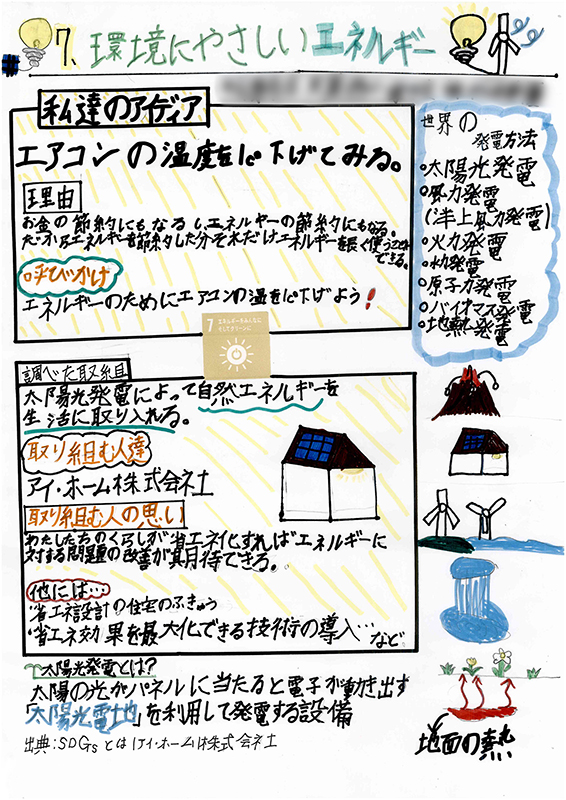 7、環境にやさしいエネルギー
私達のアイディア
エアコンの温度を1℃下げてみる。
理由
お金の節約にもなるしエネルギーの節約にもなる。
だからエネルギーを節約した分それだけエネルギーを長く使うことができる。
呼びかけ
エネルギーのためにエアコンの温を1℃下げよう!
世界の
発電方法
・太陽光発電
・風力発電
(洋上風力発電)
・火力発電
・水力発電
・原子力発電
・バイオマス発電
・地熱発電
7 エネルギーをみんなに
そしてクリーンに
調べた取組
太陽光発電によって自然エネルギーを
生活に取り入れる。
取り組む人達
アイ・ホーム株式会社
取り組む人の思い
わたしたちのくらしが省エネ化すればエネルギーに
対する問題の改善が期待できる。
他には…
・省エネ設計の住宅のふきゅう
・省エネ効果を最大化できる技術の導入…など
太陽光発電とは?
太陽の光がパネルに当たると電子が動き出す
「太陽光電池」を利用して発電する設備
出典:SDGsとは|アイ・ホーム株式会社
地面の熱